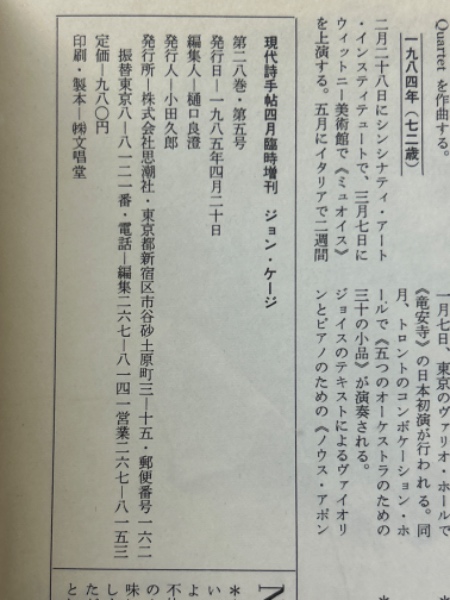 Quartet を作曲する。
一九八四年(七二歳)
二月二十八日にシンシナティ・アート
・インスティテュートで、三月七日に
ウィットニー美術館で《ミュオイス》
を上演する。五月にイタリアで二週間
一月七日、東京のヴァリオ・ホールで
《竜安寺》の日本初演が行われる。同
月、トロントのコンボケーション・ホ
ールで《五つのオーケストラのための
三十の小品》が演奏される。
ジョイスのテキストによるヴァイオリ
ンとピアノのための《ノウス・アポン
現代詩手帖四月臨時増刊 ジョン・ケージ
第二八巻・第五号
発行日―一九八五年四月二十日
編集人―樋口良澄
発行人―小田久郎
発行所―株式会社思潮社・東京都新宿区市谷砂土原町三―十五・郵便番号一六二
振替東京八―八一二一番・電話―編集二六七―八一四一営業二六七―八一五三
定価―九八〇円
印刷・製本―㈱文唱堂